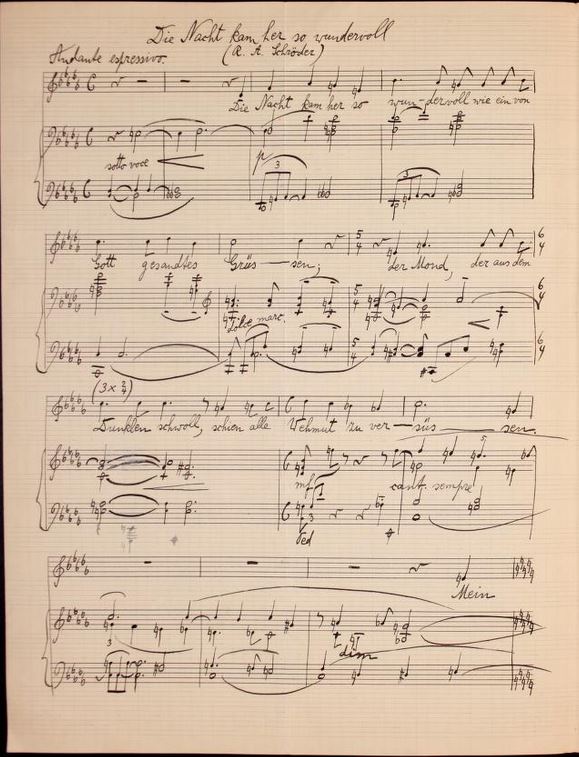 Die Nacht kam her so wundervoll
(R. A. Schröder)
Andante espressivo.
Die Nacht kam her so wun-dervoll wie ein von
sotto voce
p
3
3
Gott gesandtes Grüs — sen;
der Mond, der aus dem
dolce marc.
5
4
6
4
(3 x 2/4)
Dunklen schwoll, schien alle Wehmut zu ver — süs — sen.
mf
cant. sempre
Ped
Mein
3
dim